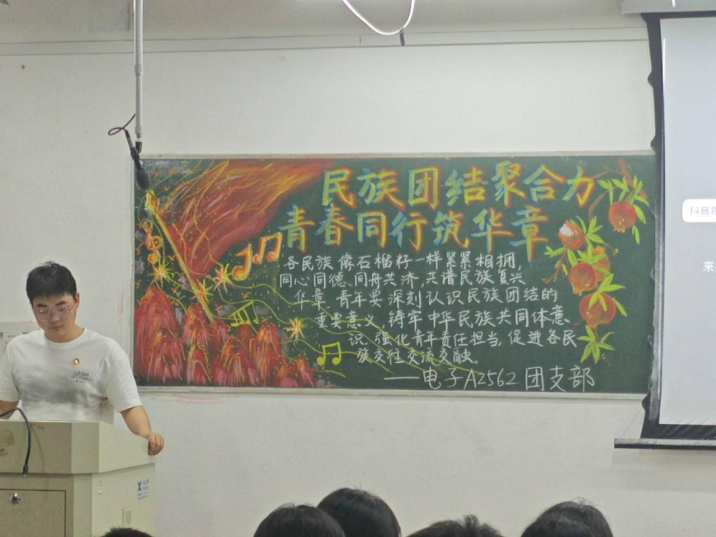 民族团结聚合力
青春同行筑华章
各民族像石榴籽一样紧紧相拥,
同心同德、同舟共济,共谱民族复兴
华章.青年要深刻认识民族团结的
重要意义,铸牢中华民族共同体意
识.强化青年责任担当.促进各民
族交往交流交融.
——电子A2562团支部
抖音
来